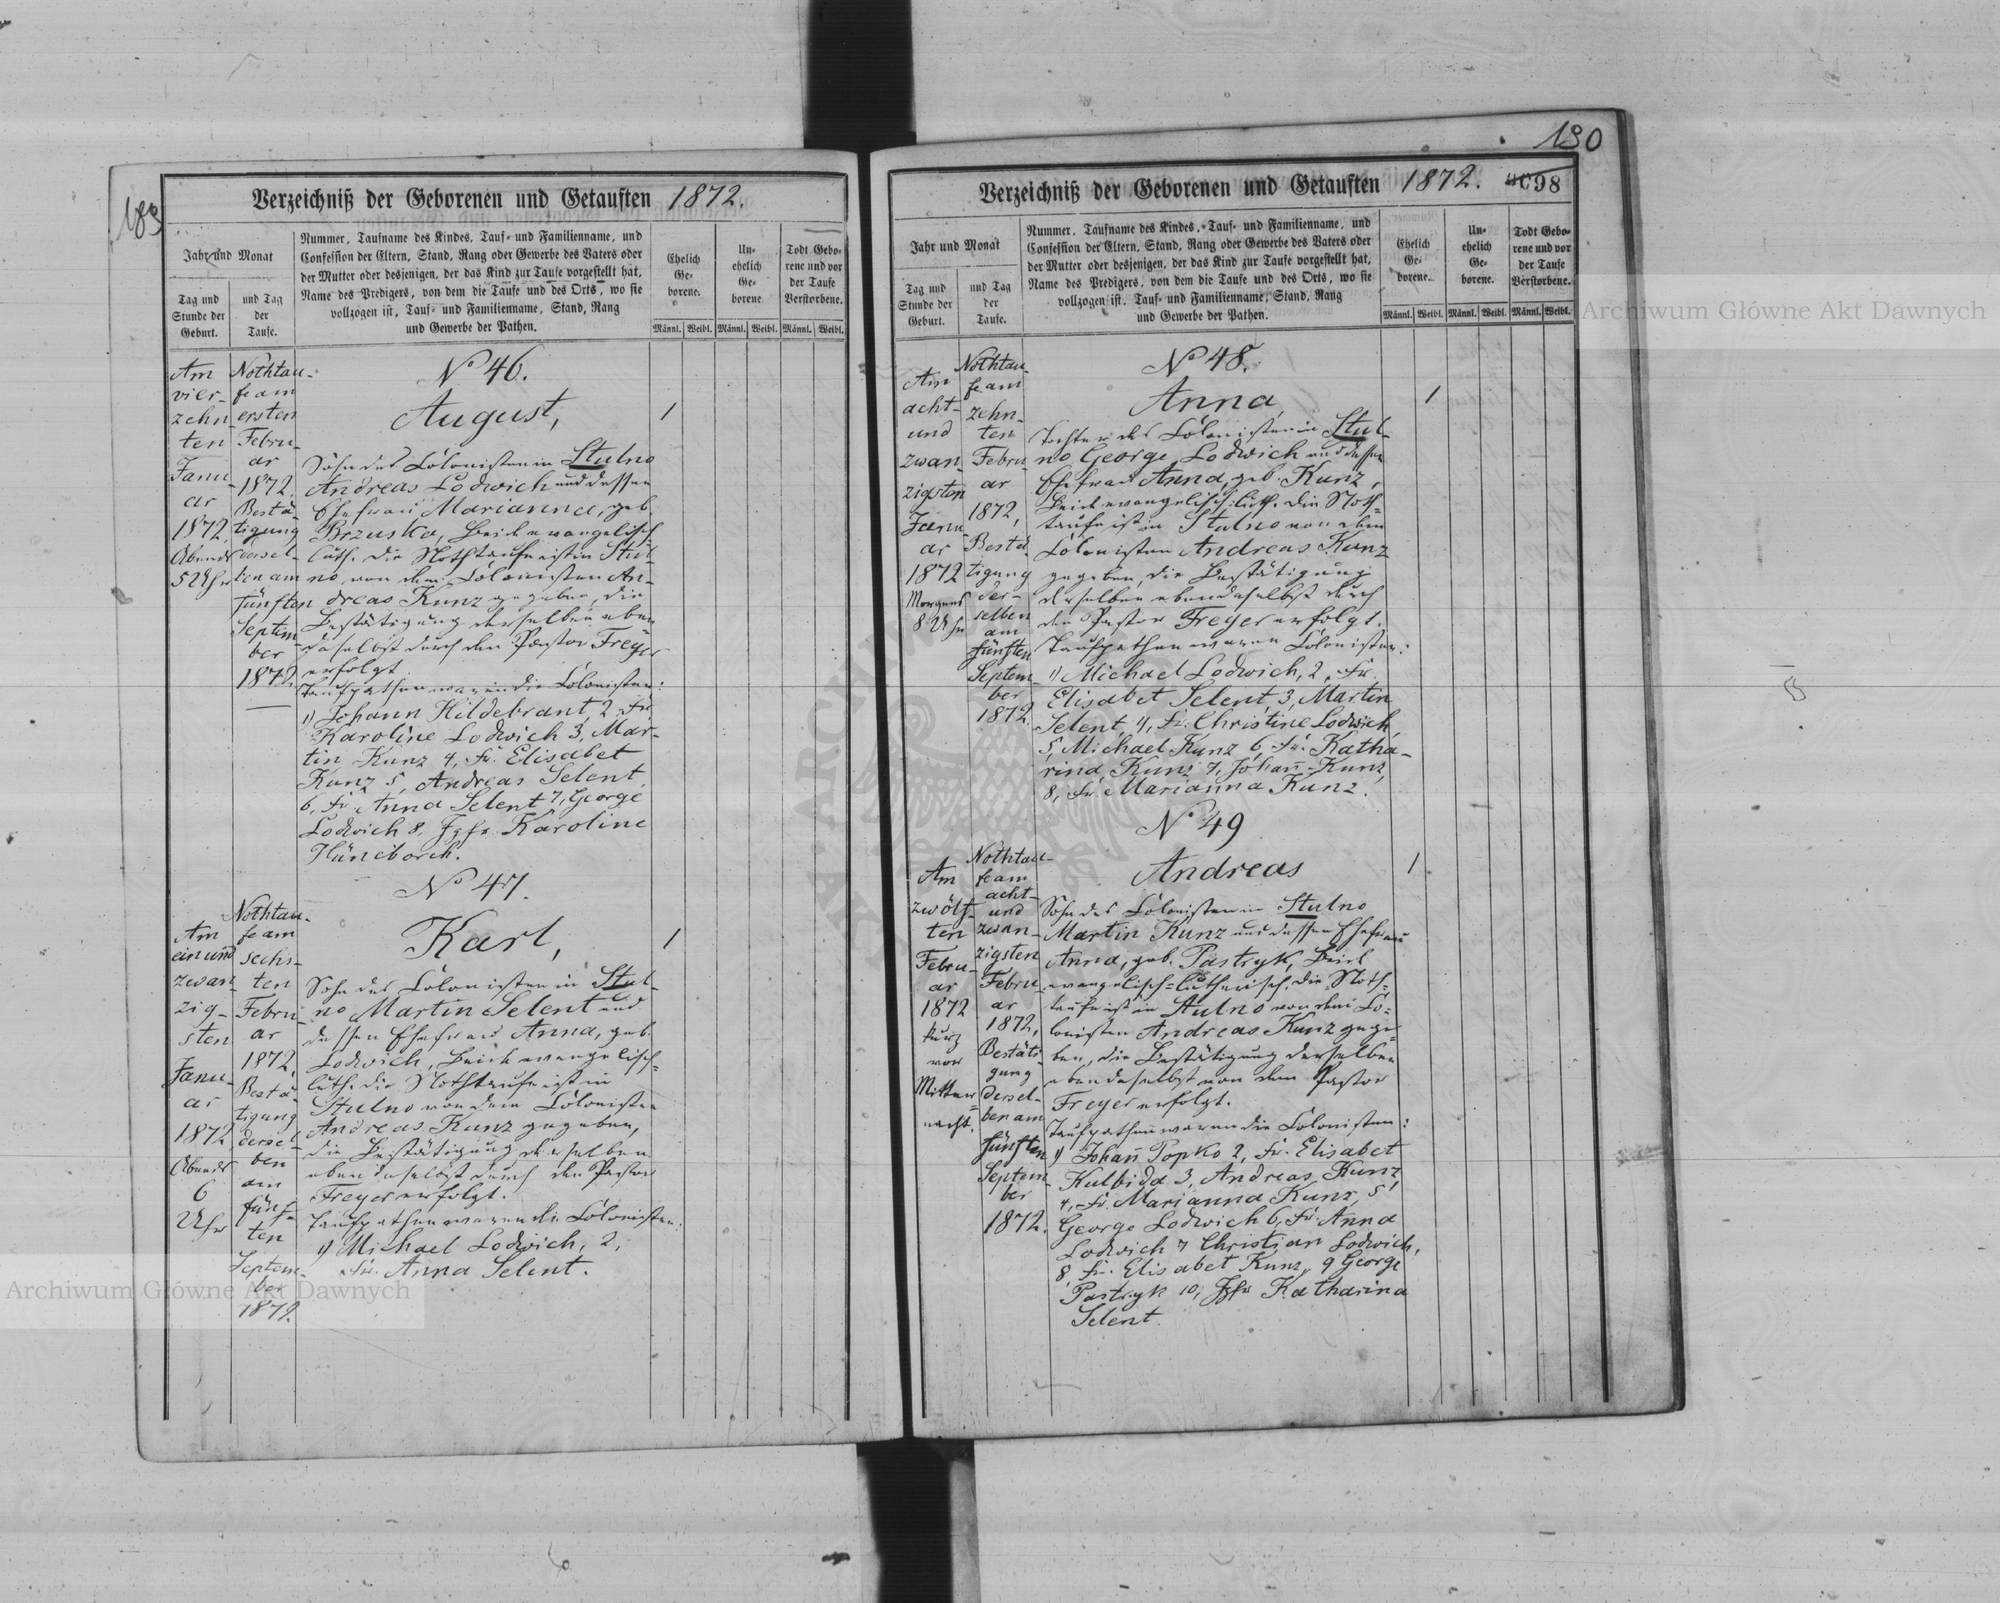 183
Verzeichniß der Geborenen und Getauften 1872.
Jahr und Monat
Tag und
Stunde der
Geburt.
und Tag
der
Taufe.
Nummer, Taufname des Kindes, Tauf- und Familienname, und
Confession der Eltern, Stand, Rang oder Gewerbe des Vaters oder
der Mutter oder desjenigen, der das Kind zur Taufe vorgestellt hat,
Name des Predigers, von dem die Taufe und des Orts, wo sie
vollzogen ist, Tauf- und Familienname, Stand, Rang
und Gewerbe der Pathen.
Ehelich
Ge-
borene.
Un-
ehelich
Ge-
borene
Todt Gebo-
rene und vor
der Taufe
Verstorbene.
Männl. Weibl. Männl. Weibl. Männl. Weibl.
Am
vier-
zehn
ten
Janu-
ar
1872,
Abends
5 Uhr
Nothtau-
fe am
ersten
Febru-
ar
1872.
Bestä-
tigung
dersel-
ben am
fünften
Septem-
ber
1872
No 46.
August,
1
Sohn des Colonisten in Stulno
Andreas Lodwich und dessen
Ehefrau Marianna, geb.
Brzuska, Beide evangelisch-
luth. Die Nothtaufe ist in Stul-
no von dem Colonisten An-
dreas Kunz gegeben, die
Bestätigung derselben eben-
daselbst durch den Pastor Freyer
erfolgt.
Taufpathen waren die Colonisten:
1, Johann Hildebrant, 2, Fr.
Karoline Lodwich 3, Mar-
tin Kunz 4, Fr. Elisabet
Kunz 5, Andreas Selent,
6, Fr. Anna Selent 7, George
Lodwich 8, Jgfr. Karoline
Am
ein und
zwan-
zig-
sten
Janu-
ar
1872,
Abends
6
Uhr
Nothtau-
fe am
sechs-
ten
Febru-
ar
1872,
Bestä-
tigung
dersel-
ben
am
fünf-
ten
Septem-
ber
1872.
No 47.
Karl,
1
Sohn des Colonisten in Stul-
no Martin Selent und
dessen Ehefrau Anna, geb.
Lodwich, Beide evangelisch-
luth. Die Nothtaufe ist in
Stulno von dem Colonisten
Andreas Kunz gegeben,
die Bestätigung derselben
ebendaselbst durch den Pastor
Freyer erfolgt.
Taufpathen waren die Colonisten:
1, Michael Lodwich, 2,
Fr. Anna Selent.
190
Verzeichniß der Geborenen und Getauften 1872. 4098
Jahr und Monat
Tag und
Stunde der
Geburt.
und Tag
der
Taufe.
Nummer, Taufname des Kindes, Tauf- und Familienname, und
Confession der Eltern, Stand, Rang oder Gewerbe des Vaters oder
der Mutter oder desjenigen, der das Kind zur Taufe vorgestellt hat,
Name des Predigers, von dem die Taufe und des Orts, wo sie
vollzogen ist, Tauf- und Familienname, Stand, Rang
und Gewerbe der Pathen.
Ehelich
Ge-
borene.
Un-
ehelich
Ge-
borene.
Todt Gebo-
rene und vor
der Taufe
Verstorbene.
Männl. Weibl. Männl. Weibl. Männl. Weibl.
Am
acht-
und
zwan-
zigsten
Janu-
ar
1872
Morgens
8 Uhr
Nothtau-
fe am
zehn-
ten
Febru-
ar
1872,
Bestä-
tigung
der-
selben
am
fünften
Septem-
ber
1872.
No 48.
Anna,
1
Tochter des Colonisten in Stul-
no George Lodwich und dessen
Ehefrau Anna, geb. Kunz,
Beide evangelisch-luth. Die Noth-
taufe ist in Stulno von dem
Colonisten Andreas Kunz
gegeben, die Bestätigung
derselben ebendaselbst durch
den Pastor Freyer erfolgt.
Taufpathen waren Colonisten:
1, Michael Lodwich, 2, Fr.
Elisabet Selent, 3, Martin
Selent, 4, Fr. Christine Lodwich,
5, Michael Kunz 6, Fr. Katha-
rina Kunz 7, Johann Kunz,
8, Fr. Marianna Kunz.
Am
zwölf-
ten
Febru-
ar
1872
kurz
vor
Mitter-
nacht.
Nothtau-
fe am
acht-
und
zwan-
zigsten
Febru-
ar
1872,
Bestäti-
gung
dersel-
ben am
fünften
Septem-
ber
1872.
No 49
Andreas
1
Sohn des Colonisten in Stulno
Martin Kunz und dessen Ehefrau
Anna, geb. Pastryk, Beide
evangelisch-lutherisch, Die Noth-
taufe ist in Stulno von dem Co-
lonisten Andreas Kunz gege-
ben, die Bestätigung derselben
ebendaselbst von dem Pastor
Freyer erfolgt.
Taufpathen waren die Colonisten:
1, Johann Popko 2, Fr. Elisabet
Kulbida 3, Andreas Kunz,
4, Fr. Marianna Kunz, 5,
George Lodwich 6, Fr. Anna
Lodwich 7 Christian Lodwich,
8, Fr. Elisabet Kunz, 9 George
Pastryk 10, Jgfr Katharina
Selent.
Archiwum Główne Akt Dawnych
Archiwum Główne Akt Dawnych